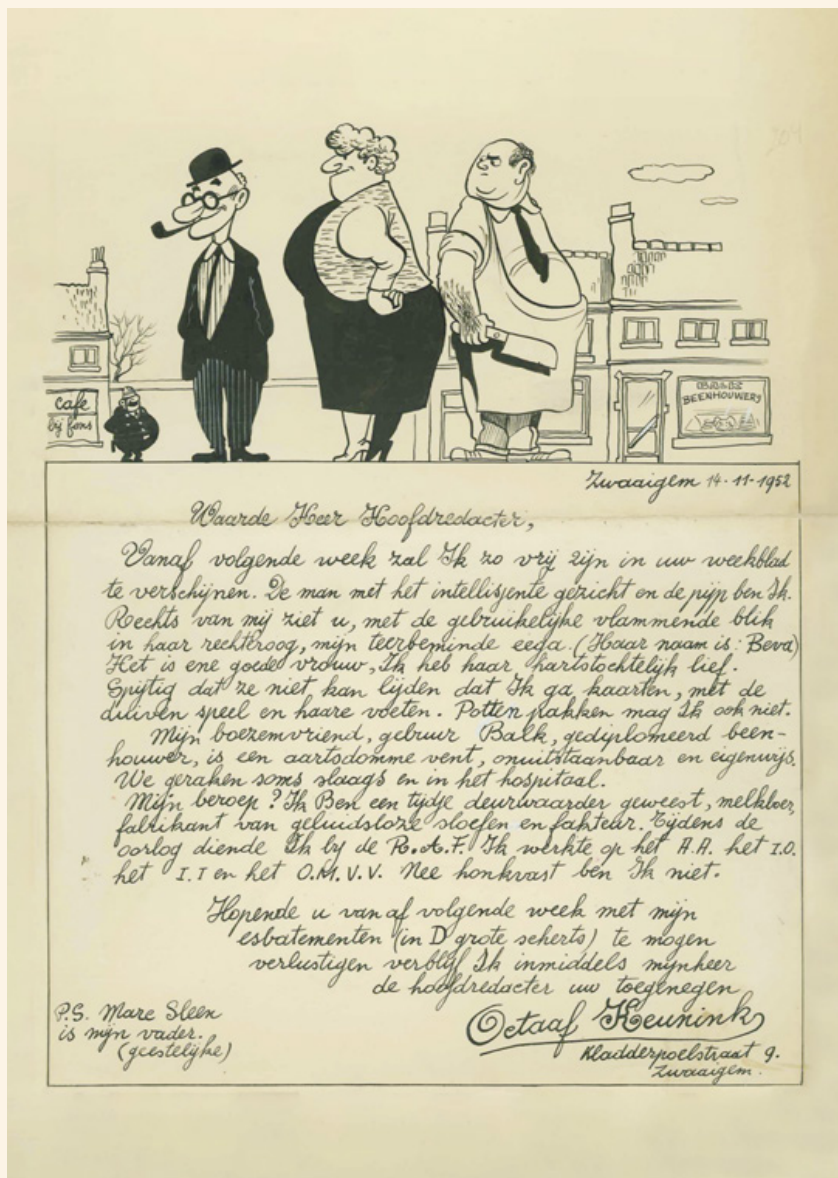 cafe
bij fons
BALK
BEENHOUWERIJ
Zwaaigem 14-11-1952
Waarde Heer Hoofdredacter,
Vanaf volgende week zal Ik zo vrij zijn in uw weekblad
te verschijnen. De man met het intellisjente gezicht en de pijp ben Ik.
Rechts van mij ziet u, met de gebruikelijke vlammende blik
in haar rechteroog, mijn teerbeminde eega. (Haar naam is: Beva)
Het is ene goede vrouw, Ik heb haar hartstochtelijk lief.
Spijtig dat ze niet kan lijden dat Ik ga kaarten, met de
duiven speel en haare voeten. Potten pakken mag Ik ook niet.
Mijn boezemvriend, gebuur Balk, gediplomeerd been-
houwer, is een aartsdomme vent, onuitstaanbaar en eigenwijs.
We geraken soms slaags en in het hospitaal.
Mijn beroep? Ik Ben een tijdje deurwaarder geweest, melkboer,
fabrikant van geluidsloze sloefen en fakteur. Tijdens de
oorlog diende Ik bij de R.A.F. Ik werkte op het A.A. het I.O.
het I.I en het O.M.V.V. Nee honkvast ben Ik niet.
Hopende u vanaf volgende week met mijn
esbatementen (in D grote scherts) te mogen
verlustigen verblijf Ik inmiddels mijnheer
de hoofdredacter uw toegenegen
Octaaf Keunink
Kladderpoelstraat 9.
Zwaaigem.
P.S. Marc Sleen
is mijn vader.
(geestelijke)